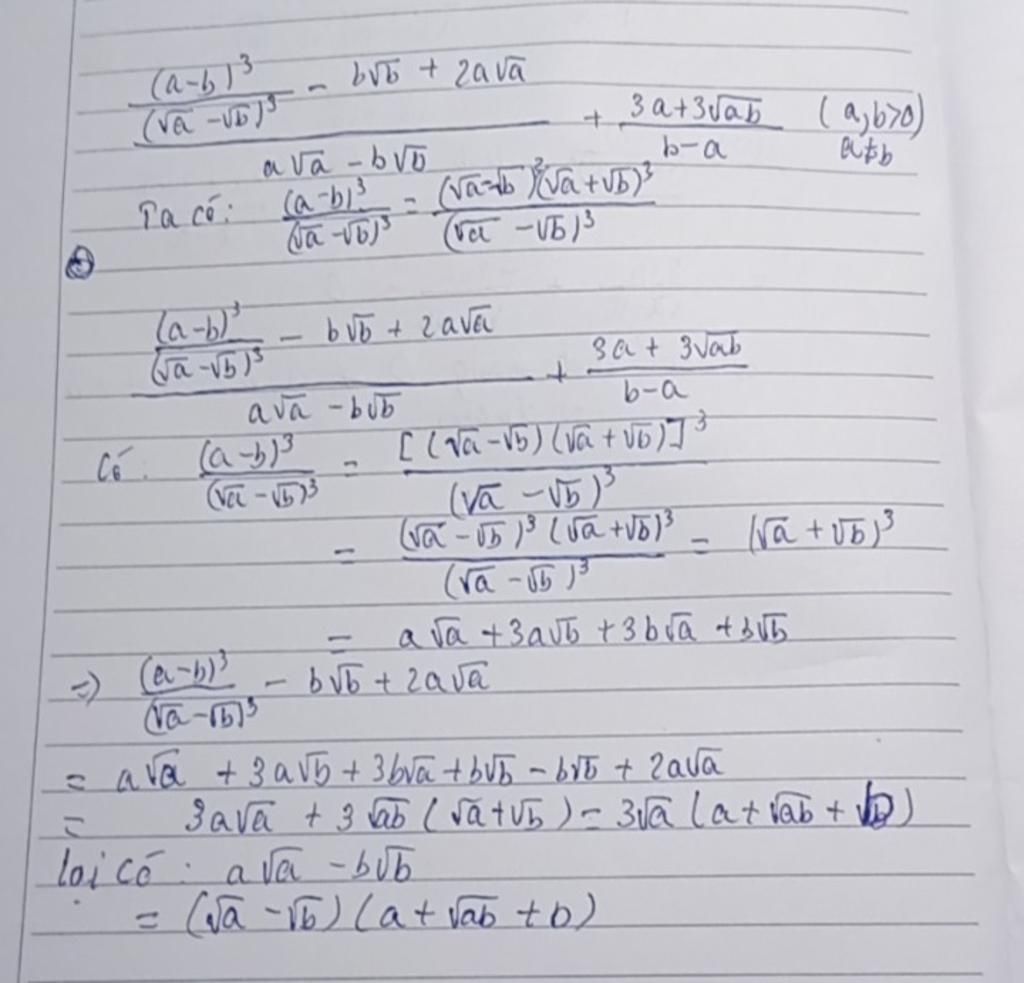 ((a-b)³/(√a -√b)³ - b√b + 2a√a)/(a√a - b√b) + (3a+3√ab)/(b-a) (a,b>0) a≠b
Ta có: (a-b)³/(√a -√b)³ = (√a-√b)³(√a+√b)³/(√a -√b)³
((a-b)³/(√a -√b)³ - b√b + 2a√a)/(a√a - b√b) + (3a + 3√ab)/(b-a)
Có: (a-b)³/(√a -√b)³ = [(√a-√b)(√a+√b)]³/(√a -√b)³
= (√a -√b)³(√a+√b)³/(√a -√b)³ = (√a +√b)³
= a√a +3a√b +3b√a +b√b
=> (a-b)³/(√a -√b)³ - b√b + 2a√a
= a√a + 3a√b + 3b√a + b√b - b√b + 2a√a
= 3a√a + 3√ab (√a+√b) = 3√a (a+√ab + b)
lại có: a√a - b√b
= (√a -√b)(a+√ab +b)